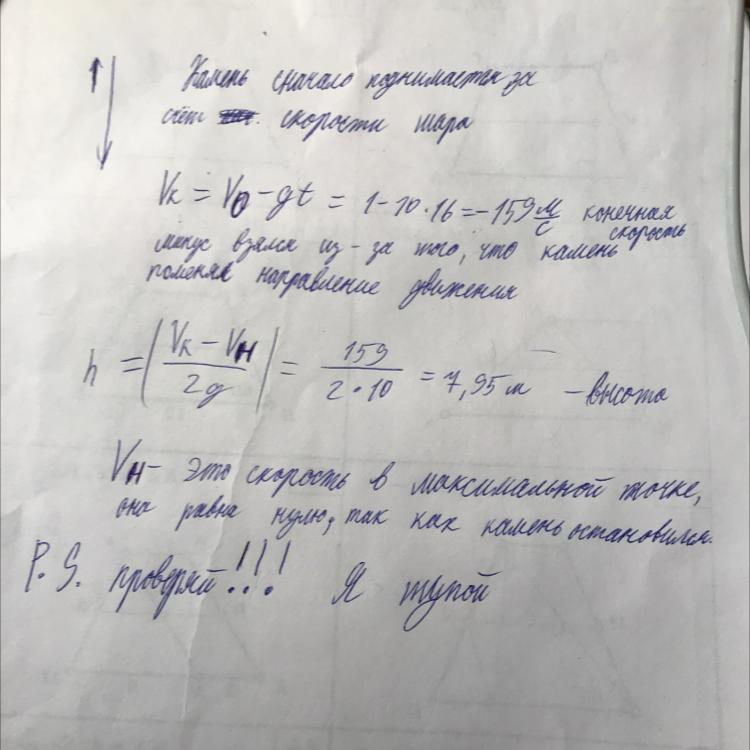 Камень сначало поднимается за
счёт скорости шара
Vк = V0 - gt = 1 - 10 · 16 = -159 м/с конечная
скорость
минус взялся из-за того, что камень
поменял направление движения
h = |(Vк - Vн)/2g| = 159/(2 · 10) = 7,95 м - высота
Vн - это скорость в максимальной точке,
она равна нулю, так как камень остановился.
P. S. проверяй!!! Я тупой